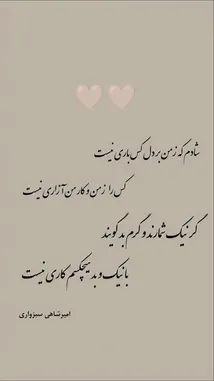 شادم که ز من بر دل کس باری نیست
کس را ز من و کار من آزاری نیست
گر نیک شمارند و گرم بد گویند
با نیک و بد هیچکسم کاری نیست
امیرشاهی سبزواری